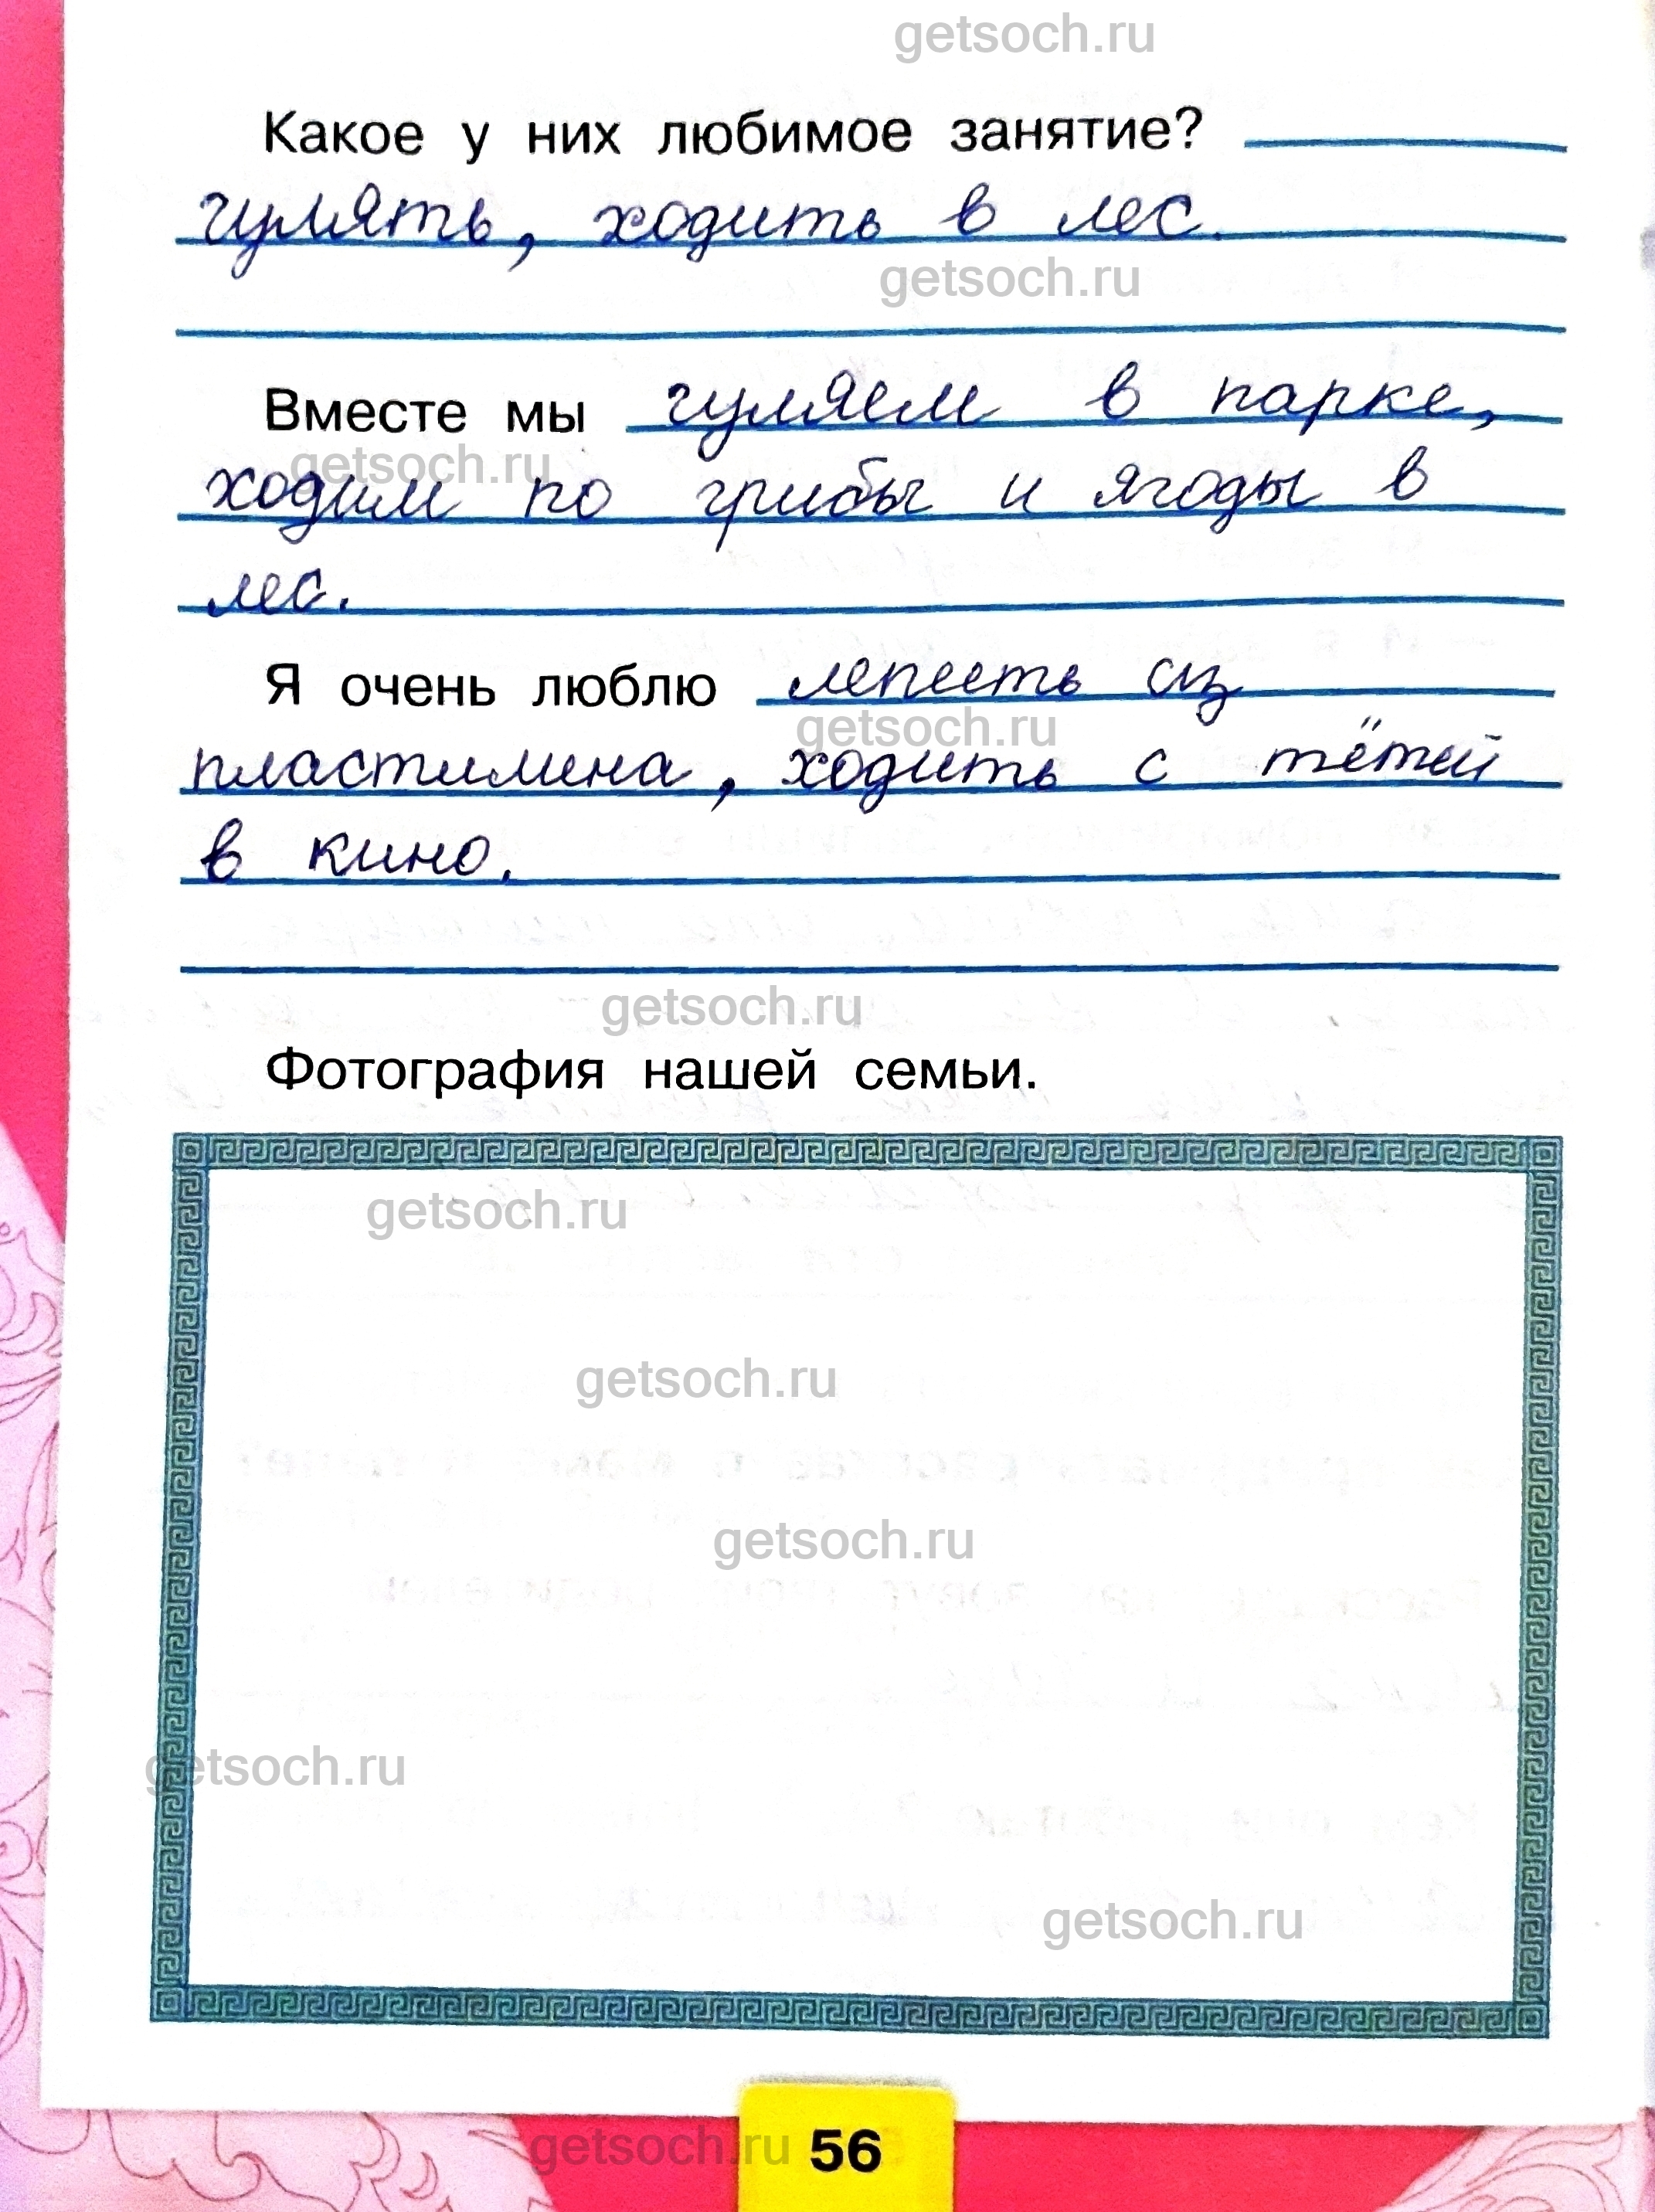 getsoch.ru
Какое у них любимое занятие?
гулять, ходить в лес.
getsoch.ru
Вместе мы гуляем в парке,
getsoch.ru
ходим по грибы и ягоды в
лес.
Я очень люблю лепеть из
getsoch.ru
пластилина, ходить с тётей
в кино.
getsoch.ru
Фотография нашей семьи.
getsoch.ru
getsoch.ru
getsoch.ru
getsoch.ru
getsoch.ru
getsoch.ru
56